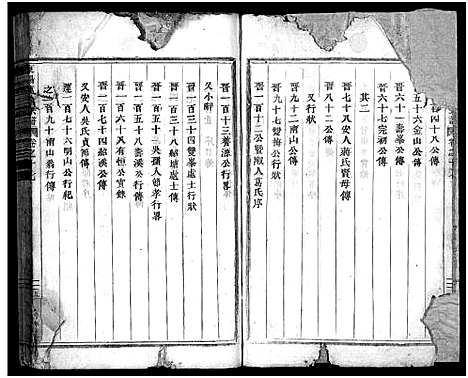 四十八公傳
五十六金山公傳
晉六十一壽峯公傳
晉六十六完初公傳
晉七十八安人蔣氏賢母傳
其二
八十二公傳
晉九十二南山公傳
又行狀
晉九十七雙梅公行狀
晉一百十二公暨淑人葛氏序
晉一百十三養源公行畧
又小
晉一百三十四雙峯處士行狀
晉一百三十八緒塘處士傳
晉一百五十二英孺人節孝行畧
晉一百六十八有恒公實錄
晉一百七十五壽溪公傳
晉一百七十四紹溪公傳
又安人吳氏貞節傳
一百七十六明山公行
一百九十南山翁行傳